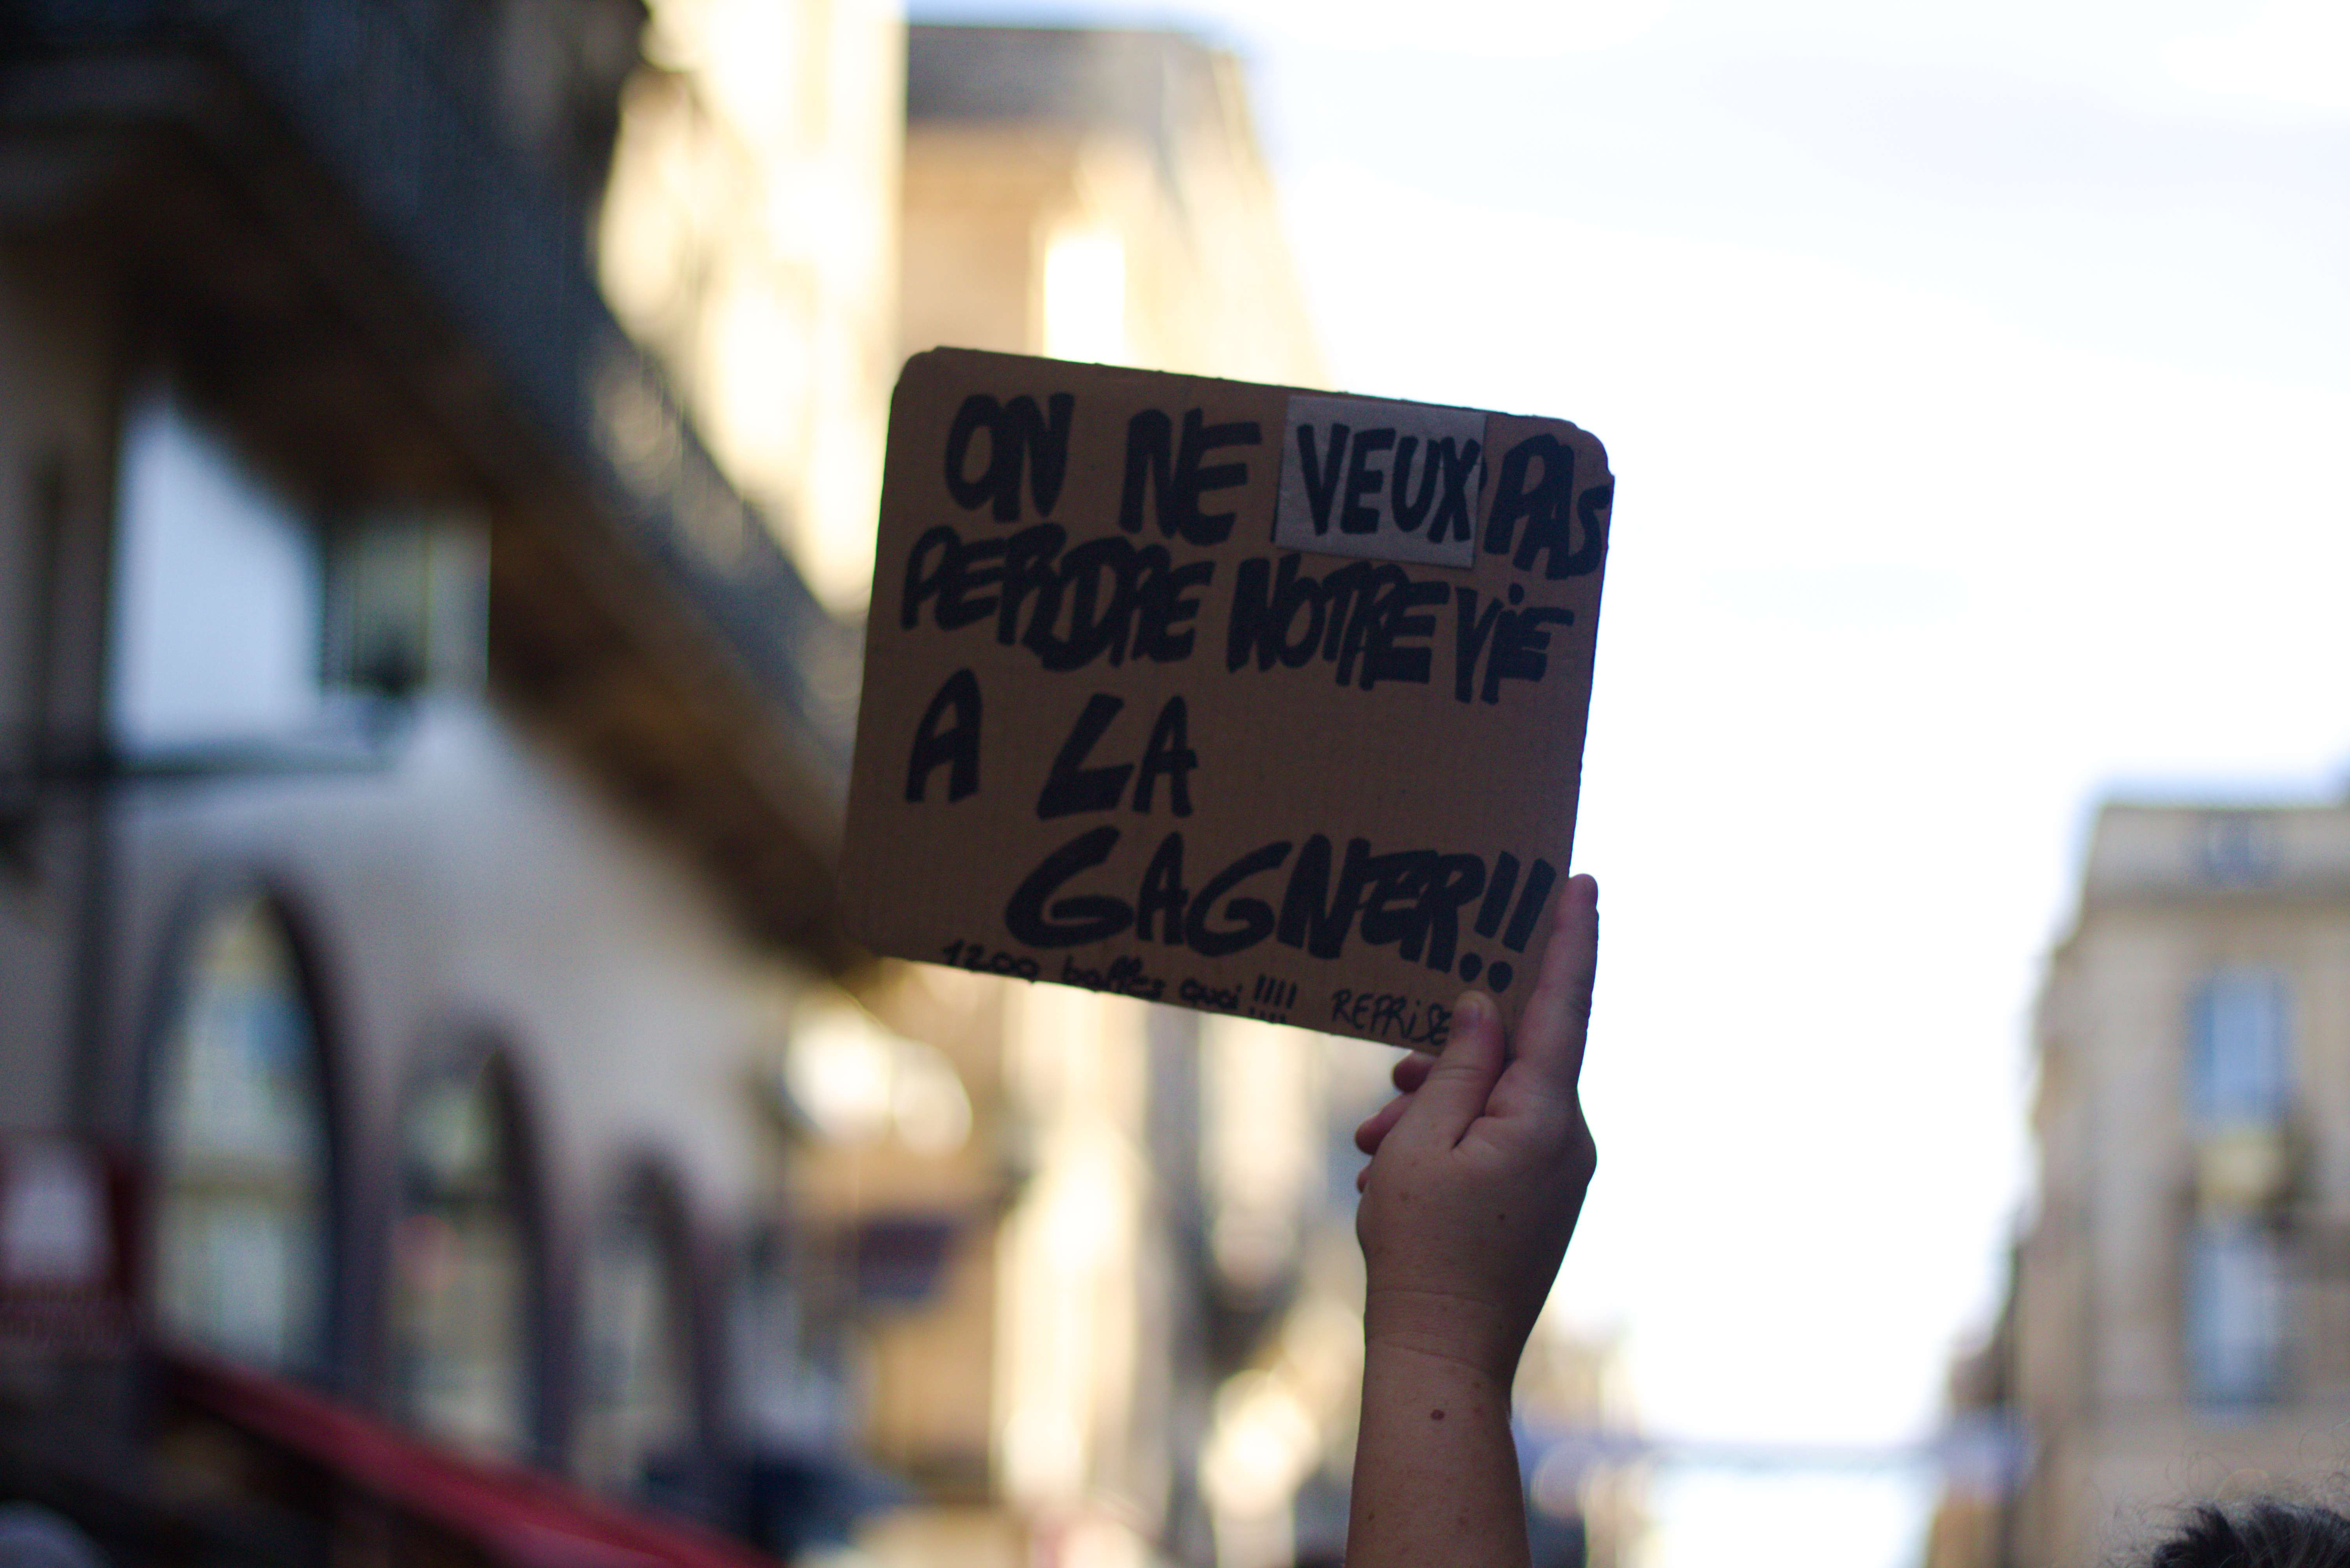 ON NE VEUX PAS
PERDRE NOTRE VIE
A LA
GAGNER!!
1200 balles quoi !!!! REPRISE